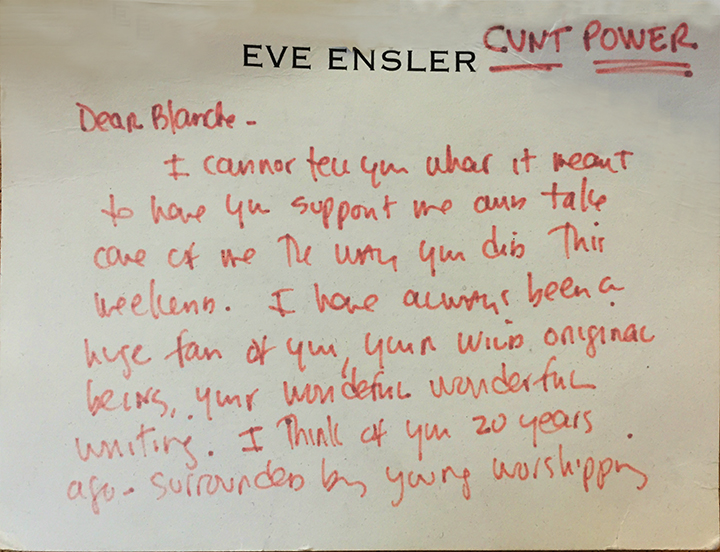 EVE ENSLER CUNT POWER
Dear Blanche -
I cannot tell you what it meant
to have you support me and take
care of me the way you did this
weekend. I have always been a
huge fan of you, your wild original
being, your wonderful wonderful
writing. I think of you 20 years
ago - surrounded by young worshipping